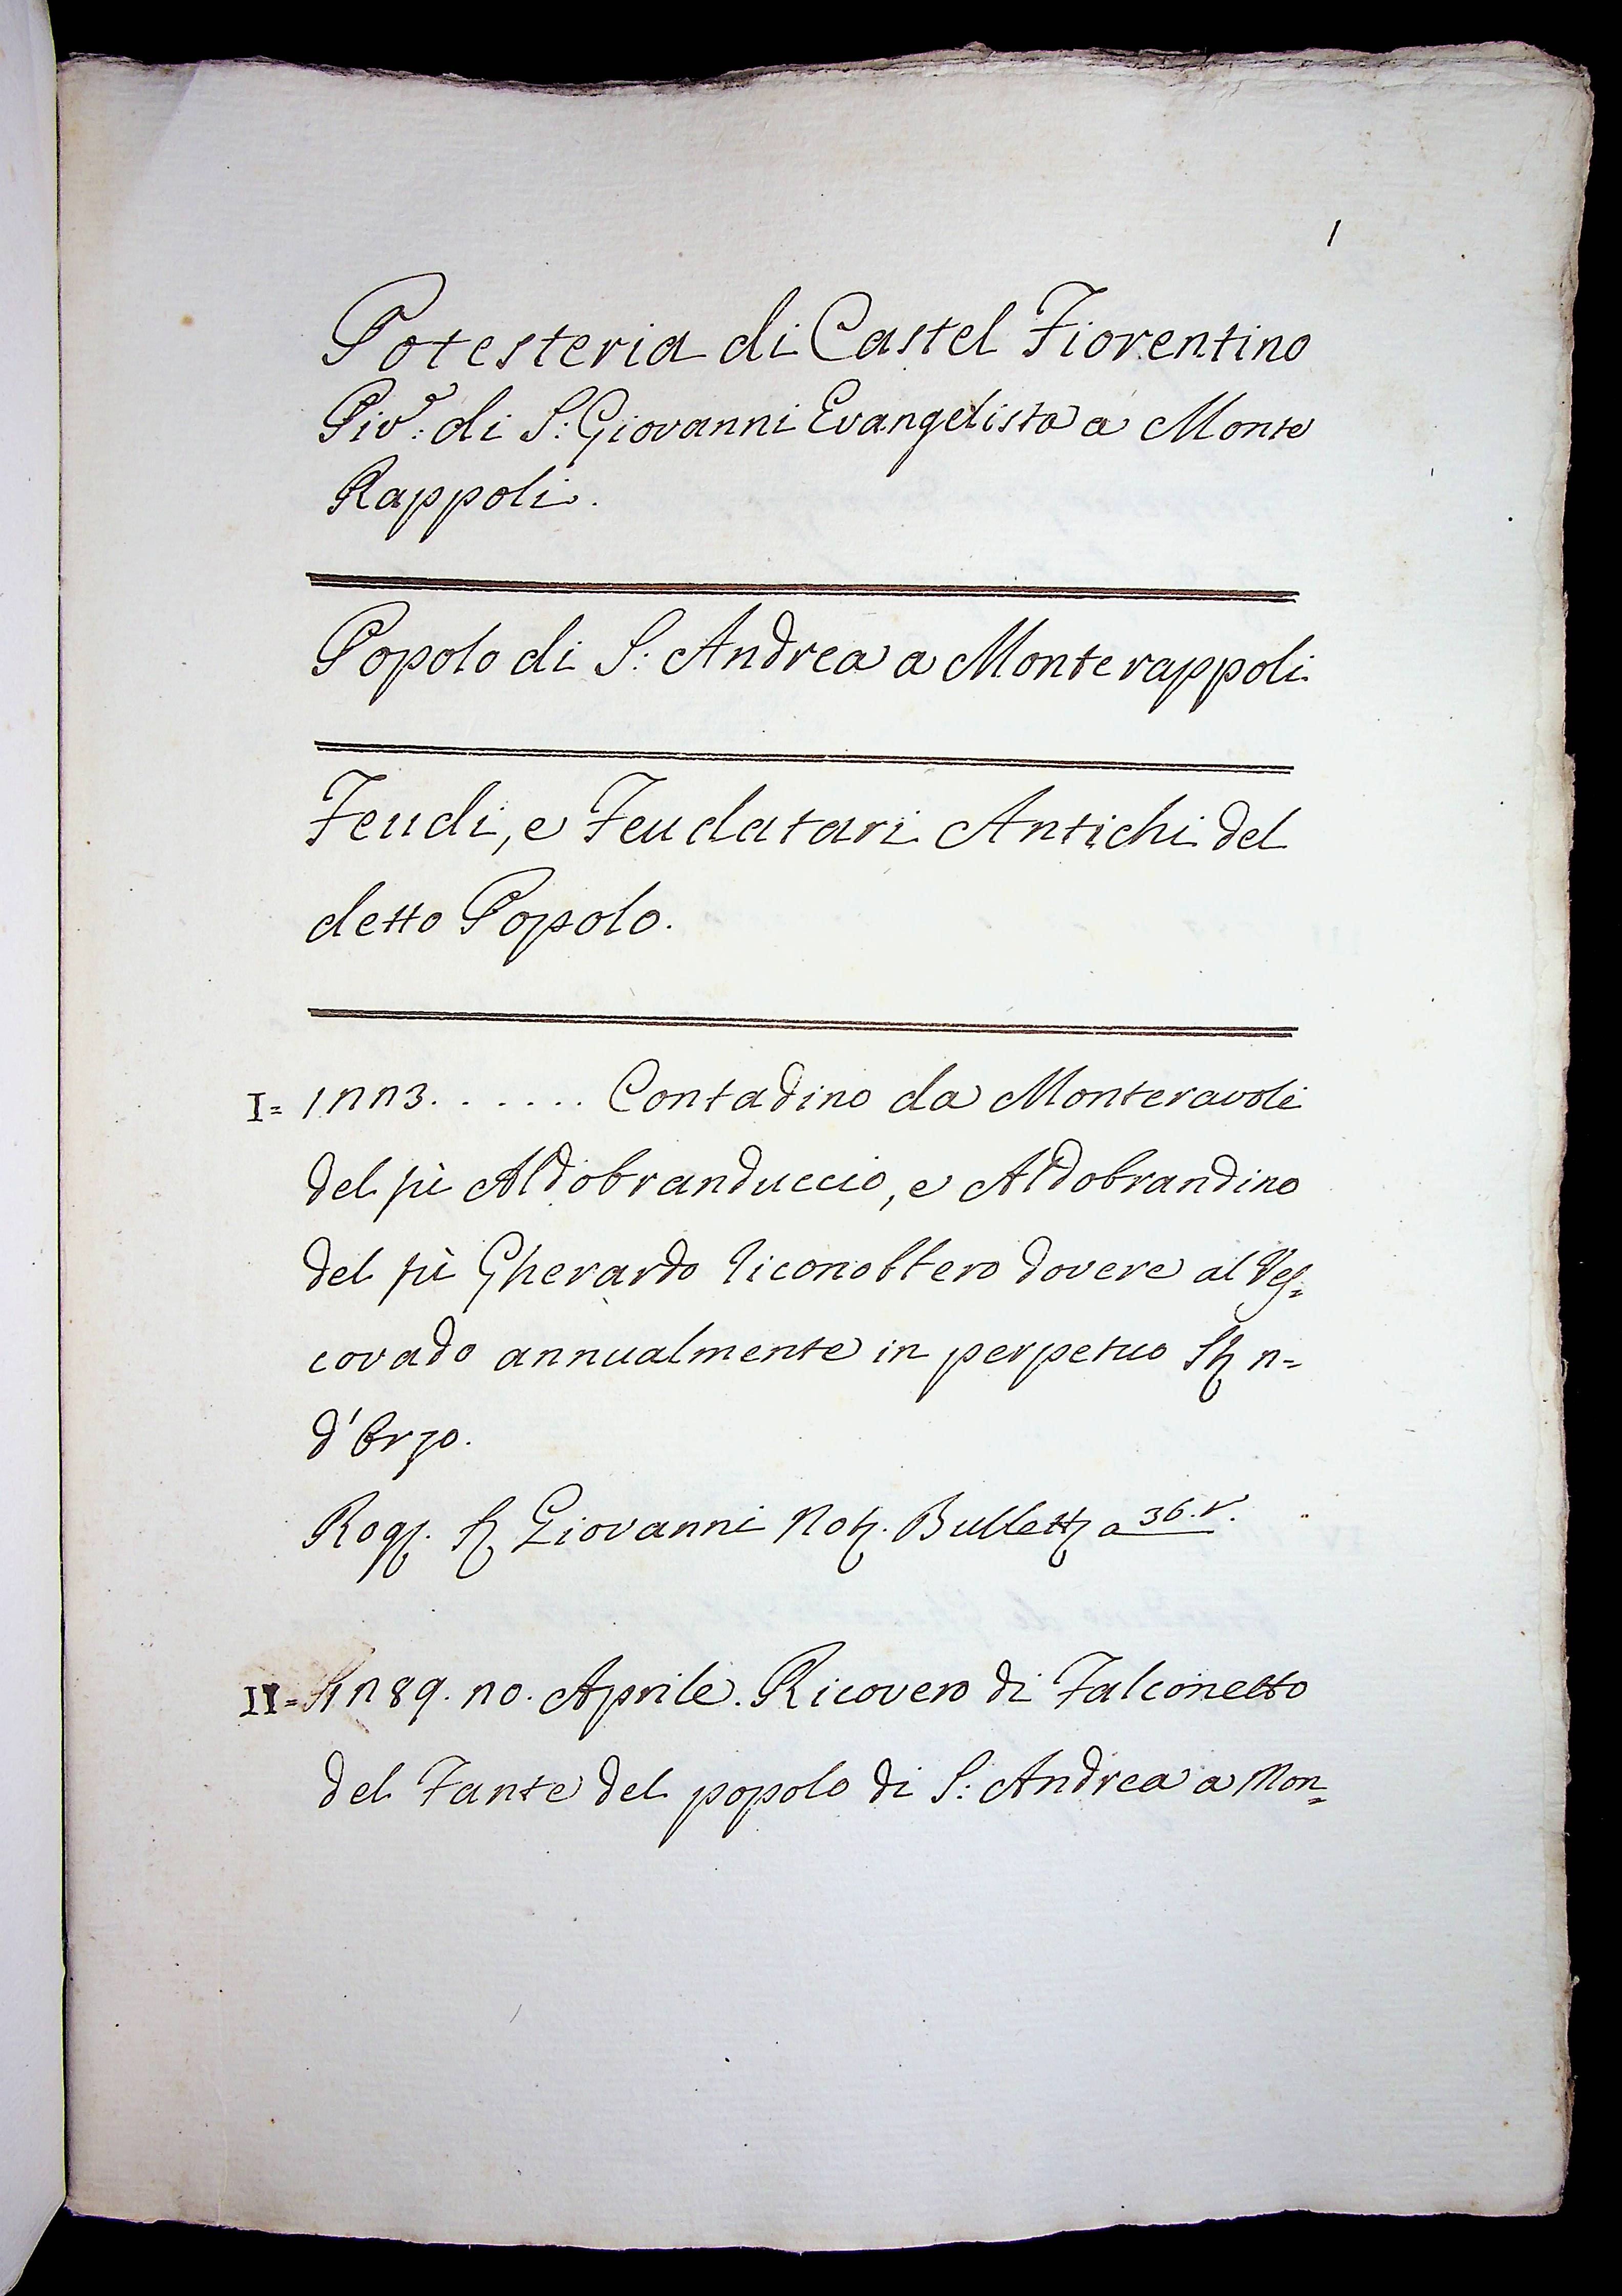 1
Potesteria di Castel Fiorentino
Piv.e di S: Giovanni Evangelista a Monte
Rappoli.
Popolo di S: Andrea a Monterappoli
Feudi, e Feudatari Antichi del
detto Popolo.
I= 1223. . . . . . Contadino da Monteravoli
del fù Aldobranduccio, e Aldobrandino
del fù Gherardo riconobbero dovere al Ves=
covado annualmente in perpetuo 2=
d'Orzo.
Rog. Giovanni Not. Bullett. a 36. r.
II= 1289. 20. Aprile. Ricovero di Falconetto
del Fante del popolo di S: Andrea a Mon=